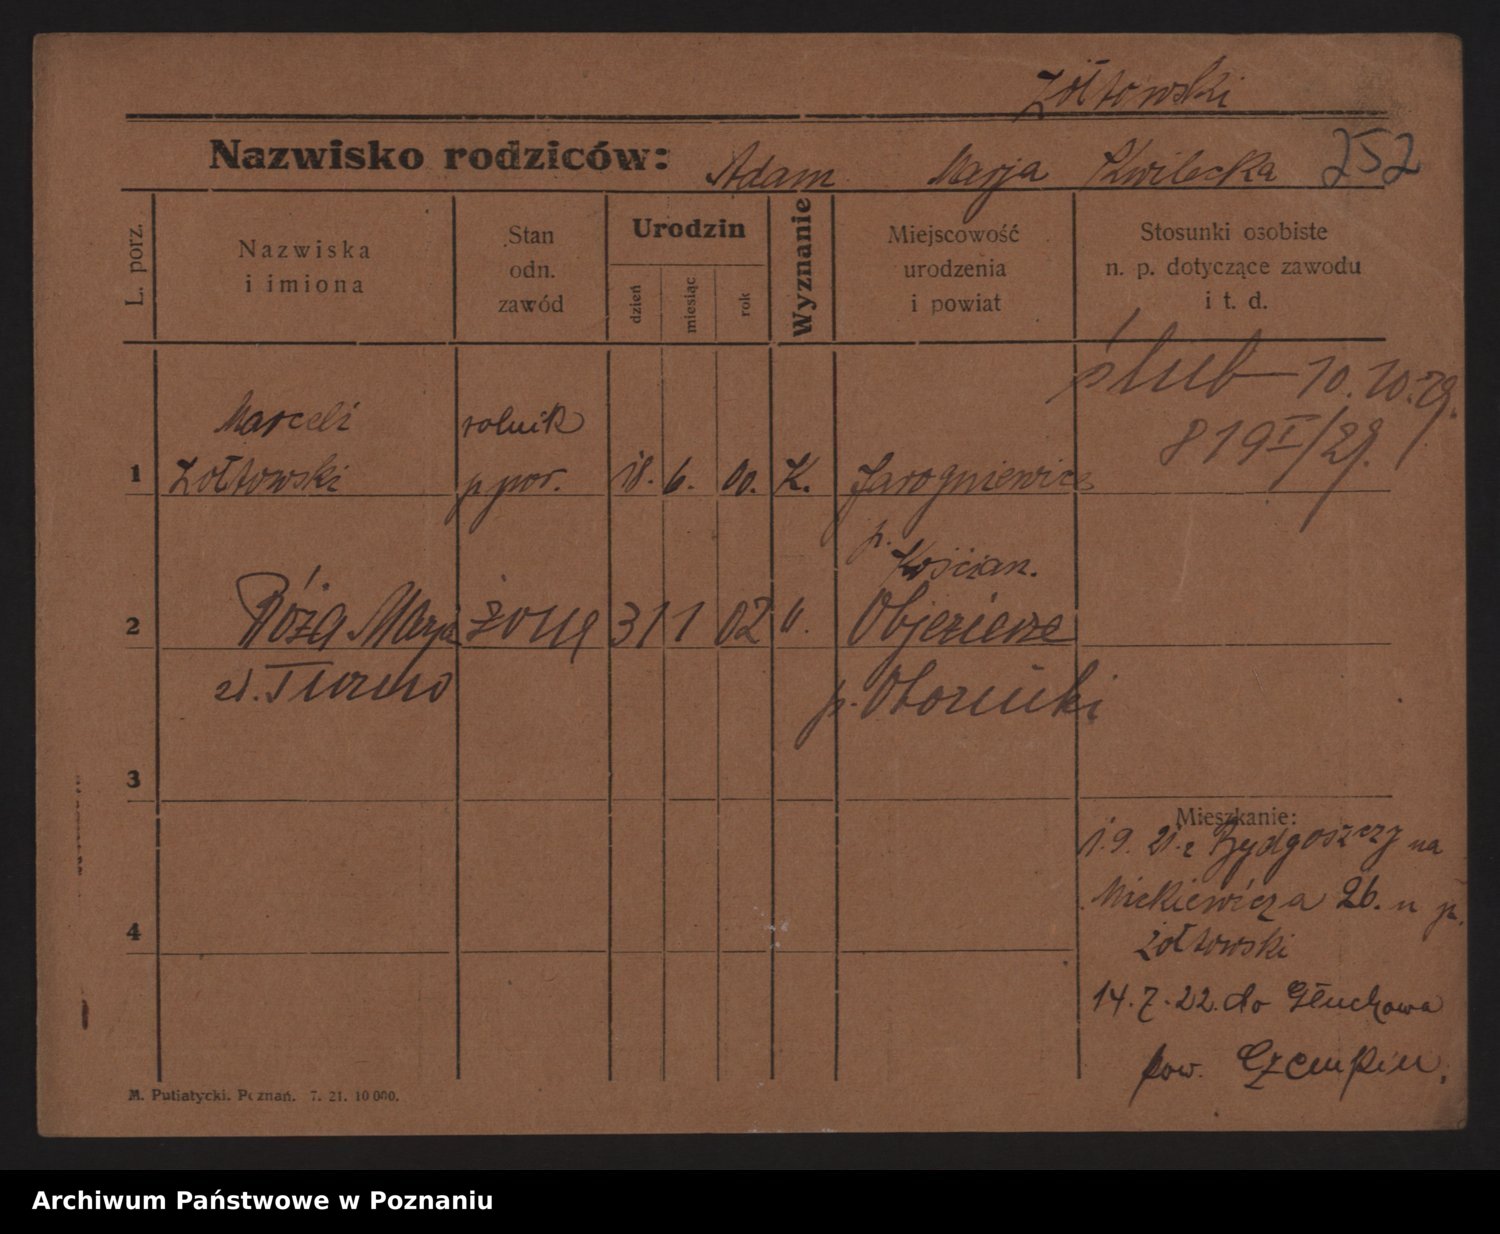 Żółtowski
Nazwisko rodziców: Adam Marja Kwilecka 252
L. porz.
Nazwiska
i imiona
Stan
odn.
zawód
Urodzin
dzień
miesiąc
rok
Wyznanie
Miejscowość
urodzenia
i powiat
Stosunki osobiste
n. p. dotyczące zawodu
i t. d.
ślub 10.10.29.
819 I/29.
Marceli rolnik
1 Żołtowski p por. 18. 6. 00. K. Jarogniewice
p.
Kościan.
2 Róża Marja żona 31 1 02 ". Objezierze
z d. Turno p. Oborniki
3
Mieszkanie:
1.9. 21. z Bydgoszczy na
Mickiewicza 26. u p.
4
Żołtowski
14.7.22. do Głuchowa
pow. Czempin.
M. Putiatycki. Poznań. 7. 21. 10 000.
Archiwum Państwowe w Poznaniu